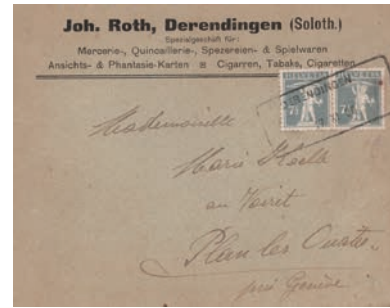 Joh. Roth, Derendingen (Soloth.)
Spezialgeschäft für:
Mercerie-, Quincaillerie-, Spezereien- & Spielwaren
Ansichts- & Phantasie-Karten Cigarren, Tabaks, Cigaretten
HELVETIA HELVETIA
7½ 7½
DERENDINGEN
Mademoiselle
Marie
au
Plan les Ouates
près Genève